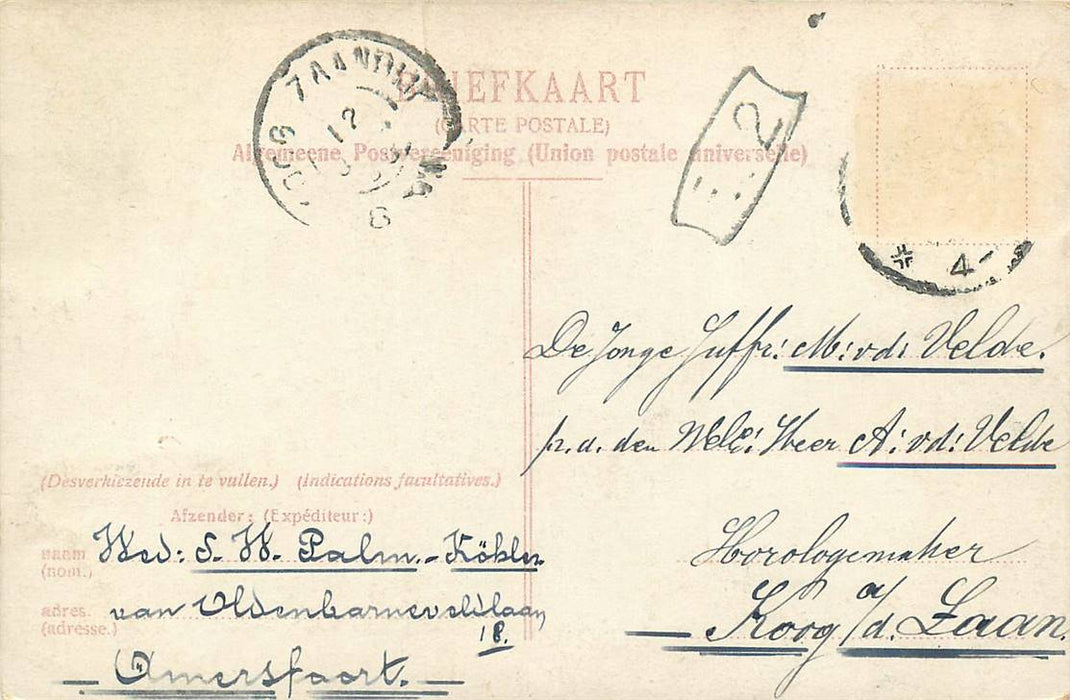 BRIEFKAART
(CARTE POSTALE)
Algemeene Postvereeniging (Union postale universelle)
KOOG ZAANDIJK
12
6
2
4-
De Jonge Juffr: M: v d: Velde.
p.a. den WelE: Heer A: v d: Velde
Horologemaker
Koog a/d. Zaan.
(Desverkiezende in te vullen.) (Indications facultatives.)
Afzender: (Expéditeur:)
naam Wed: S. W. Palm.-Köhler
(nom.)
adres. van Oldenbarneveldlaan
(adresse.) 18.
Amersfoort.